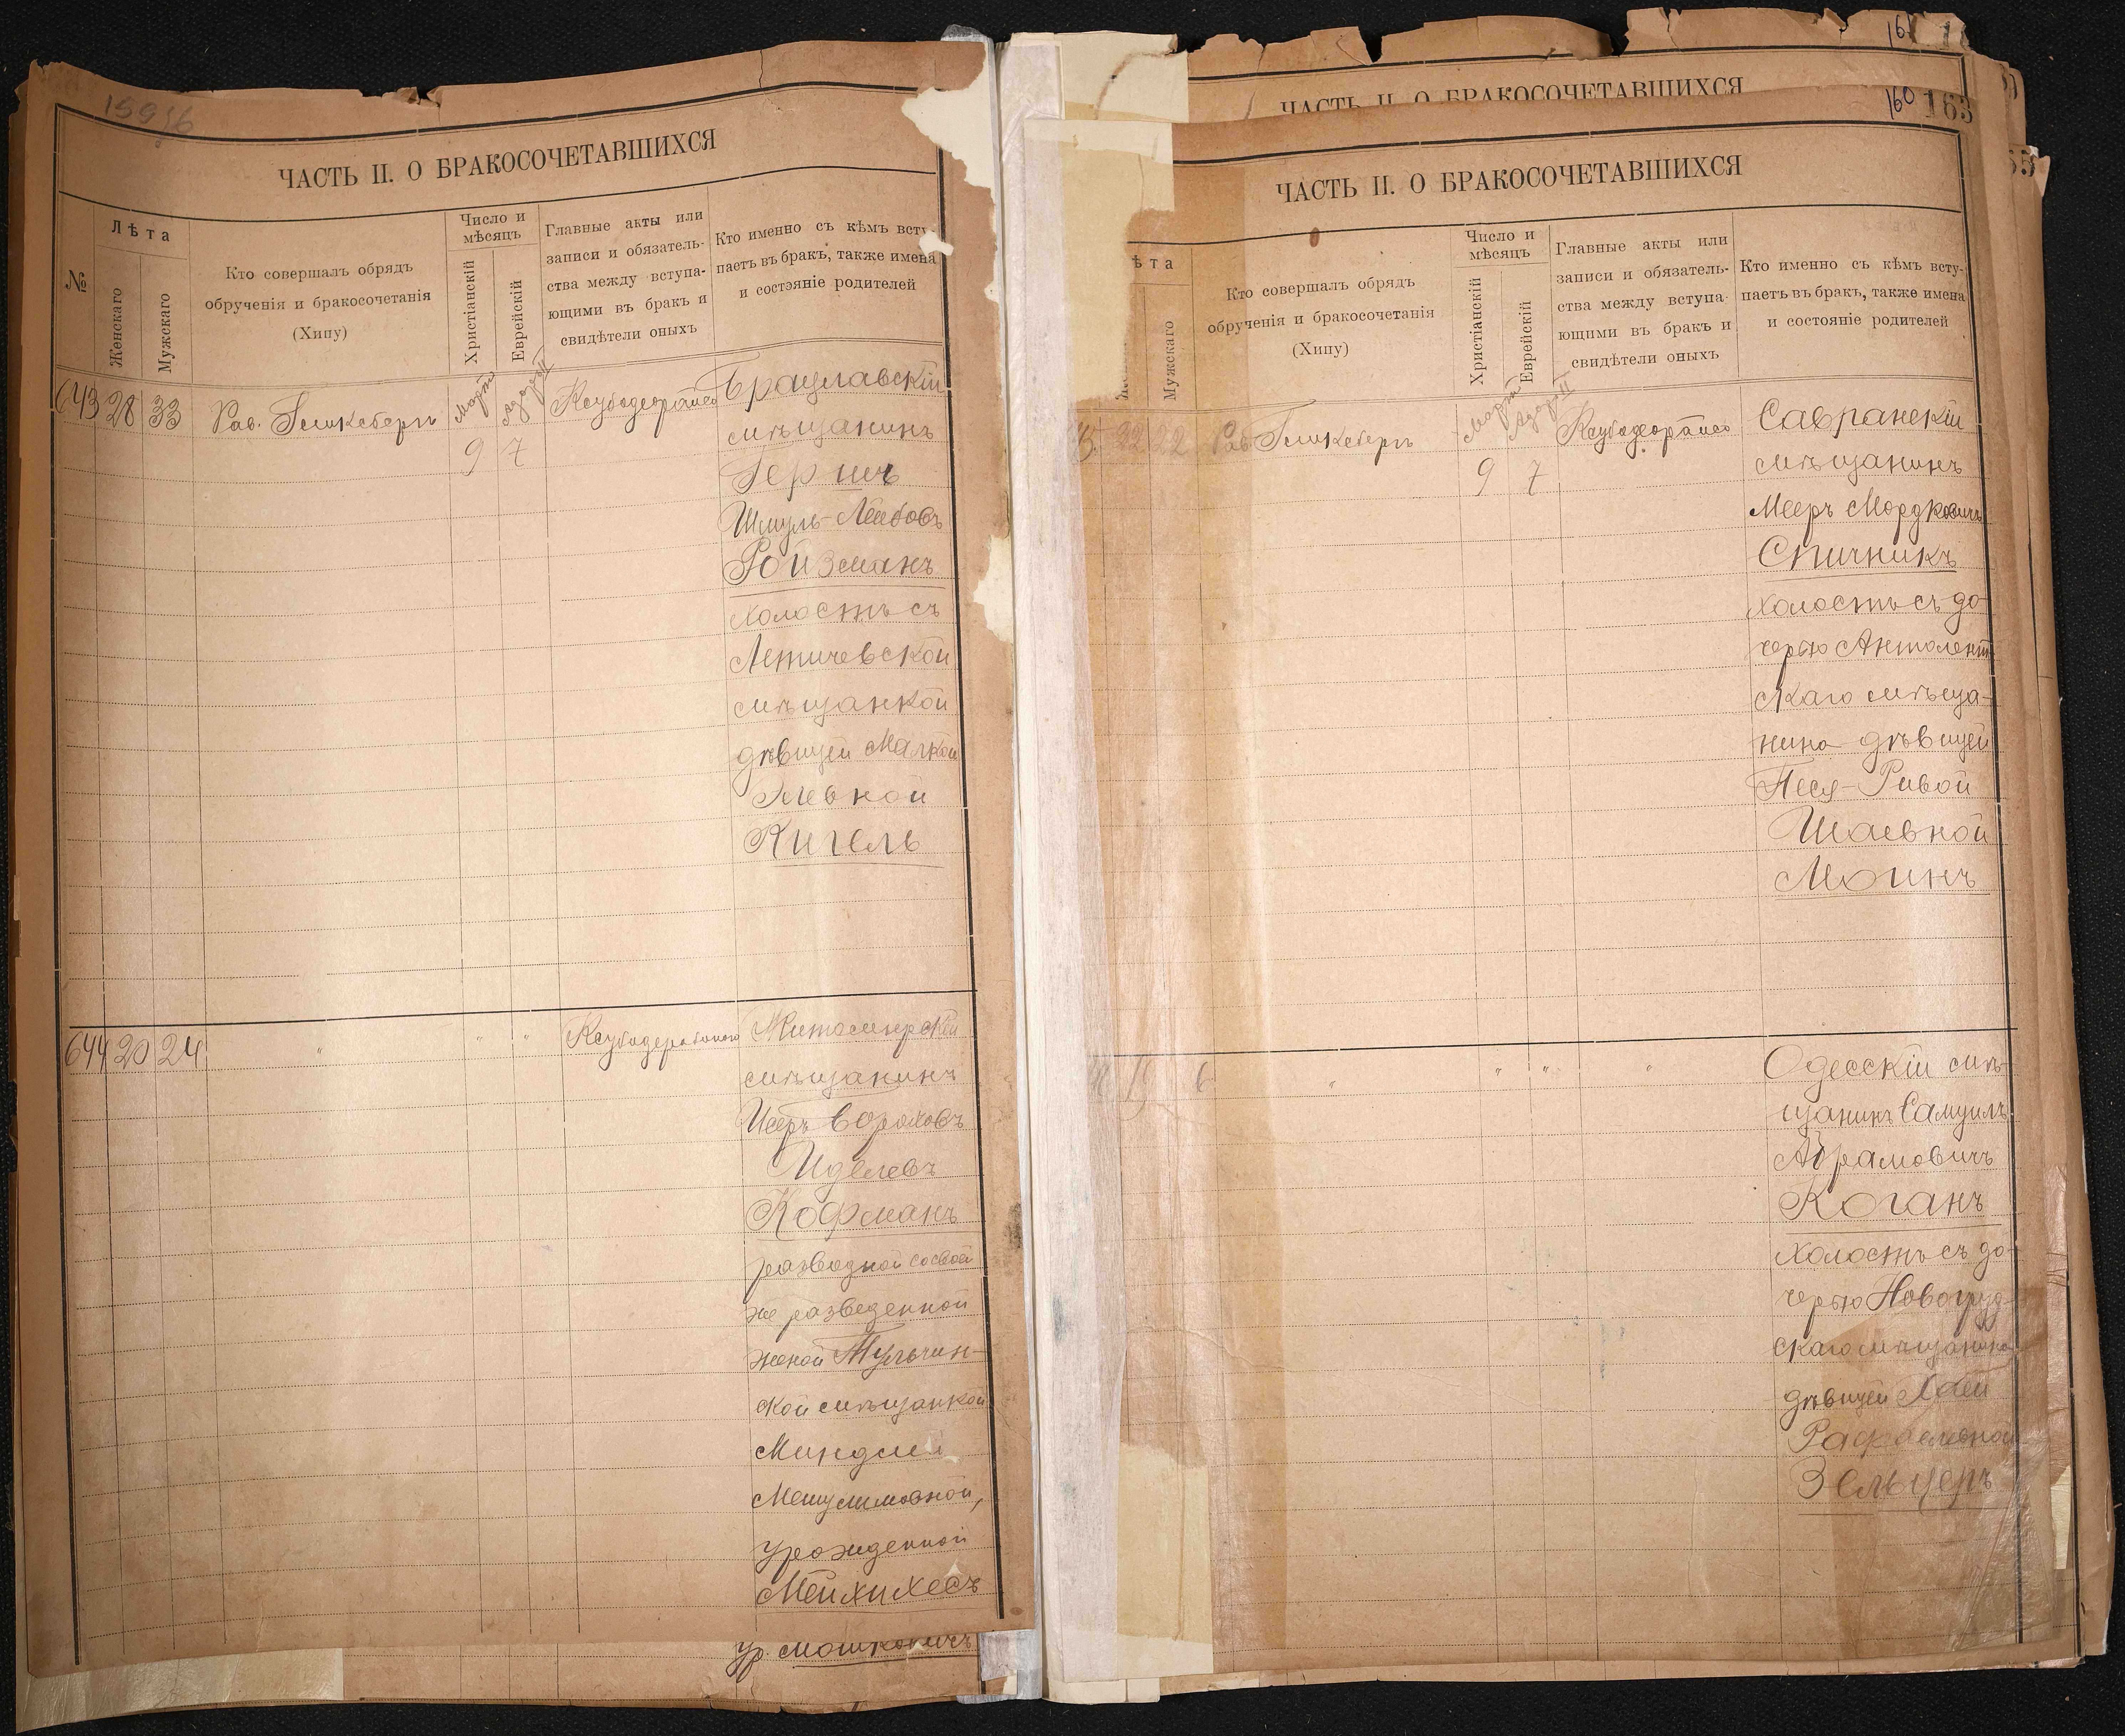 ЧАСТЬ II. О БРАКОСОЧЕТАВШИХСЯ
№
Лѣта
Женскаго
Мужскаго
Кто совершалъ обрядъ
обрученія и бракосочетанія
(Хипу)
Число и
мѣсяцъ
Христіанскій
Еврейскій
Главные акты или
записи и обязатель-
ства между вступа-
ющими въ бракъ и
свидѣтели оныхъ
Кто именно съ кѣмъ всту-
паетъ въ бракъ, также имена
и состояніе родителей
643 28 33
Рав.
Мартъ
Адаръ II
9 7
Брацлавскій
мѣщанинъ
Гершъ
Шмуль-Лейбовъ
Ройзманъ
холостъ съ
Летичевской
мѣщанкой
дѣвицей Малкой
Кигель
644 20 24
" " "
Житомирскій
мѣщанинъ
Идελевъ
Кофманъ
разводной со своей
же разведенной
женой Тульчин-
ской мѣщанкой
Мешулимовной,
урожденной
Мейхихесъ
ур. Мошковичъ
161
ЧАСТЬ II. О БРАКОСОЧЕТАВШИХСЯ
160 163
ЧАСТЬ II. О БРАКОСОЧЕТАВШИХСЯ
ѣта
Мужскаго
Кто совершалъ обрядъ
обрученія и бракосочетанія
(Хипу)
Число и
мѣсяцъ
Христіанскій
Еврейскій
Главные акты или
записи и обязатель-
ства между вступа-
ющими въ бракъ и
свидѣтели оныхъ
Кто именно съ кѣмъ всту-
паетъ въ бракъ, также имена
и состояніе родителей
22 22
Рав.
Мартъ
Адаръ II
9 7
Савранскій
мѣщанинъ
Мееръ Мордковичъ
Спичникъ
холостъ съ до-
черью
скаго мѣща-
нина дѣвицей
Песя-Ривой
Шаевной
Моинъ
" " " "
Одесскій мѣ-
щанинъ Самуилъ
Абрамовичъ
Коганъ
холостъ съ до-
черью Новогруд-
скаго мѣщанина
дѣвицей Хаей
Рафаелевной
Зельцеръ